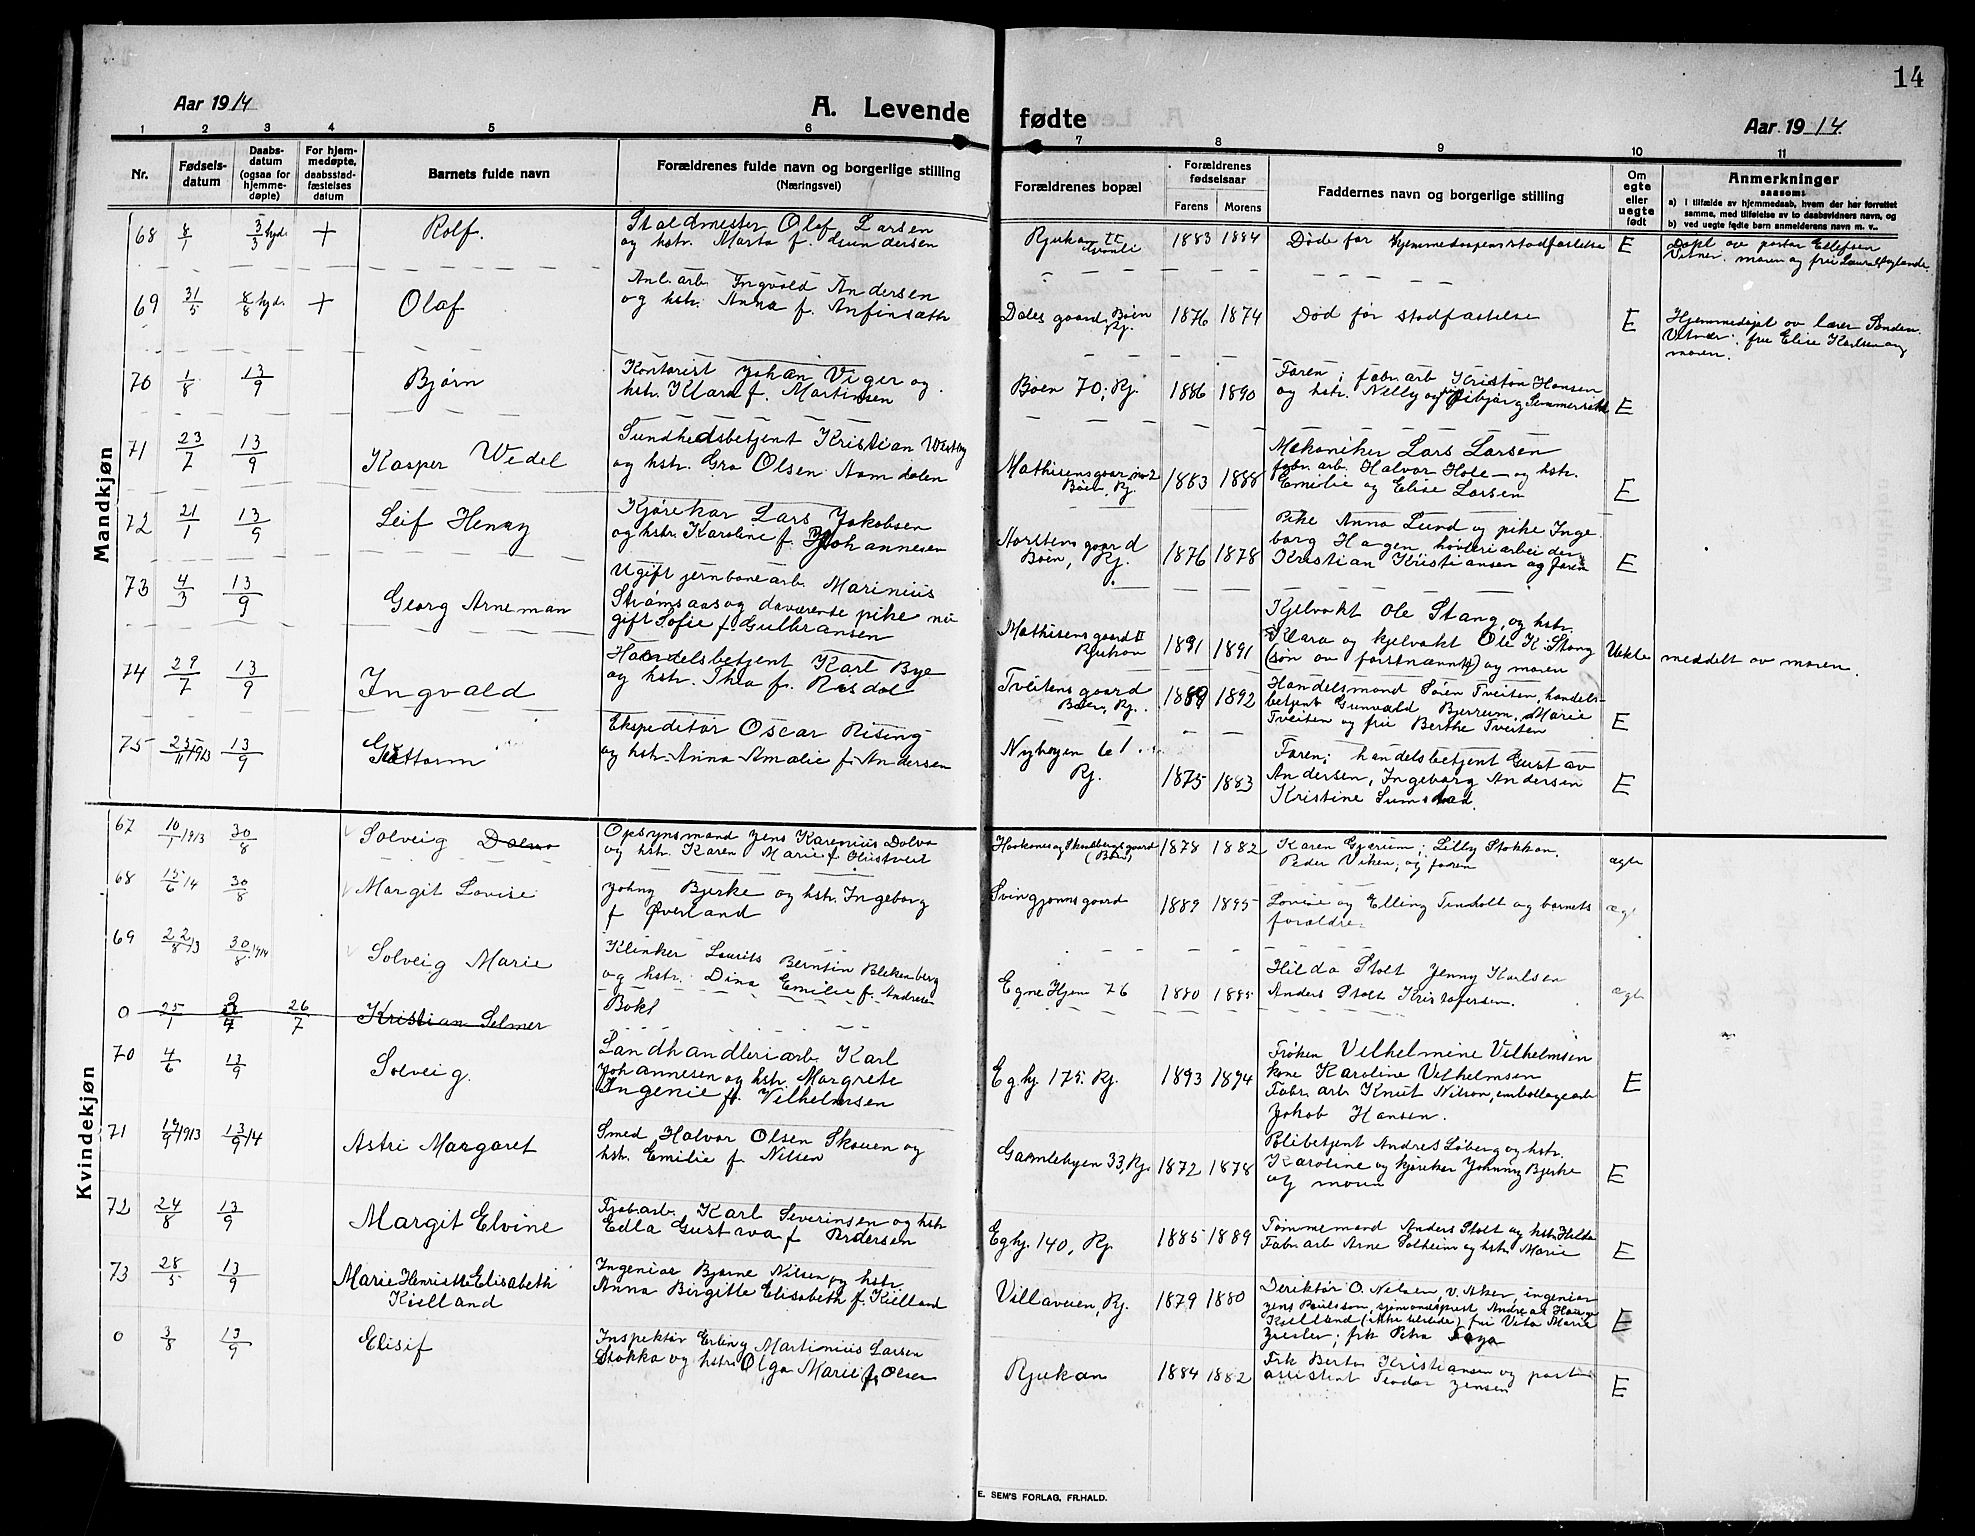 14
Aar 1914
A. Levende
fødte
Aar 1914
1 2 3 4 5 6 7 8 9 10 11
Nr.
Fødsels-
datum
Daabs-
datum
(ogsaa for
hjemme-
døpte)
For hjem-
medøpte,
daabsstad-
fæstelses
datum
Barnets fulde navn
Forældrenes fulde navn og borgerlige stilling
(Næringsvei)
Forældrenes bopæl
Forældrenes
fødselsaar
Farens Morens
Faddernes navn og borgerlige stilling
Om
egte
eller
uegte
født
Anmerkninger
saasom:
a) i tilfælde av hjemmedaab, hvem der har forrettet
samme, med tilføielse av to daabsvidners navn, og
b) ved uegte fødte børn anmelderens navn m. v..
Mandkjøn
68 8/1 3/3 hjd. + Rolf.
Staldmester Olaf Larsen
og hstr. Marta f. Gundersen
Rjukan II
1883 1884 Døde før hjemmedaapens stadfæstelse E
Døpt av pastor Ellefsen
Vitner: moren og fru Laura
69 31/5 8/8 hjd. + Olaf
Anl. arb. Ingvald Andersen
og hstr. Anna f. Anfinsæth
Dales gaard, Bøen
Rj.
1876 1874 Død før stadfæstelse E
Hjemmedøpt av lærer
Vitner: fru Elise Karlsen og
moren.
70 1/8 13/9 Bjørn
Kontorist Johan Viger og
hstr. Klara f. Martinsen
Bøen 70, Rj. 1886 1890
Faren; fabr. arb Kristian Hansen
og hstr. Nelly og
E
71 23/7 13/9 Kasper Wedel
Sundhedsbetjent Kristian Westby
og hstr. Gro Olsen Aamdalen
Mathisensgaard no 2
Bøen, Rj. 1883 1888
Mekaniker Lars Larsen
fabr. arb. Halvor Hole – og hstr.
Emilie og Elise Larsen E
72 21/1 13/9 Leif Henry
Kjørekar Lars Jakobsen
og hstr. Karoline f. Johannesen
Aorstensgaard
Bøen, Rj. 1876 1878
Pike Anna Lund og pike Inge
borg Hagen, høvleriarbeider
Kristian Kristiansen og faren E
73 4/3 13/9 Georg Arneman
Ugift jernbanearb. Marinius
Strømsaas og daværende pike nu
gift Sofie f. Gulbransen
Mathisensgaard II
Rjukan 1891 1891
Kjelvakt Ole Stang, og hstr.
Klara og kjelvakt Ole K. Stang
(søn av førstnævnte) og moren
Uekte meddelt av moren.
74 29/7 13/9 Ingvald
Handelsbetjent Karl Bye
og hstr. Thea f. Rosdal
Tveitensgaard
Bøen, Rj. 1889 1892
Handelsmand Søren Tveiten, handels-
betjent Gunvald Bjerrum, Marie
Tveiten og fru Berthe Tveiten E
75 25/11 1913 13/9 Guttorm
Ekspeditør Oscar Rising
og hstr. Anna Amalie f. Andersen
Nybyen 61
Rj. 1875 1883
Faren; handelsbetjent Gustav
Andersen, Ingeborg Andersen
Kristine Sumstad. E
Kvindekjøn
67 10/1 1913 30/8 Solveig Dolva
Opsynsmand Jens Karenius Dolva
og hstr. Karen Marie f. Olustveit
Haakanes og Skulbergsgaard
(Bøen) 1878 1882
Karen Gjærum; Lilly Stokkan.
Peder Viken; og faren ægte
68 15/6 14 30/8 Margit Lovise
Johny Bjerke og hstr. Ingeborg
f Øverland
Svingjonnsgaard 1889 1895
Lovise og Elling Tindolt og barnets
forældre. ægt
69 22/8 13 30/8 1914 Solveig Marie
Klinker Laurits Berntin Blekenberg
og hstr. Dina Emilie f. Andresen
Egne Hjem 76 1880 1885
Hilda Stolt Jenny Karlsen
Anders Stolt Kristofersen. ægte
0 25/1 2/4 26/7 Kristian Selmer Bokl
70 4/6 13/9 Solveig.
Landhandleriarb. Karl
Johannesen og hstr. Margrete
Ingenie f. Vilhelmsen
Eg. hj. 175. Rj. 1893 1894
Frøken Vilhelmine Vilhelmsen
kone Karoline Vilhelmsen
Fabr. arb Knut Nilson, emballagearb
Jakob Hansen. E
71 14/9 1913 13/9 14 Astri Margaret
Smed Halvor Olsen Skauen og
hstr. Emilie f. Nilsen
Gamlebyen 33, Rj. 1872 1878
Polibetjent Andres Løberg og hstr.
Karoline og kjørekar Johnny Bjerke
og moren E
72 24/8 13/9 Margit Elvine
Fabr. arb. Karl Severinsen og hstr
Edla Gustava f Pedersen
Eg hj. 140, Rj. 1885 1889
Tømmermand Anders Stolt og hstr. Hilda
Fabr. arb Arne Solheim og hstr. Marie E
73 28/5 13/9 Marie Henriette Elisabeth
Kielland
Ingeniør Bjarne Nilsen og hstr.
Anna Birgitte Elisabeth f. Kielland
Villaveien, Rj. 1879 1880
Direktør O. Nilsen, v. Aker, ingeniør
Jens Paulsson, sjømandsprest Andreas Hauge
Kielland (ikke tilstede) fru Vita Marie
Ziesler; frk Petra E
0 3/8 13/9 Elisif
Inspektør Erling Martinius Larsen
Stokka og hstr. Olga Marie f. Olsen
Rjukan 1884 1882
Frk Berta Kristiansen og post
assistent Teodor Jensen E
E. SEM'S FORLAG, FR.HALD.